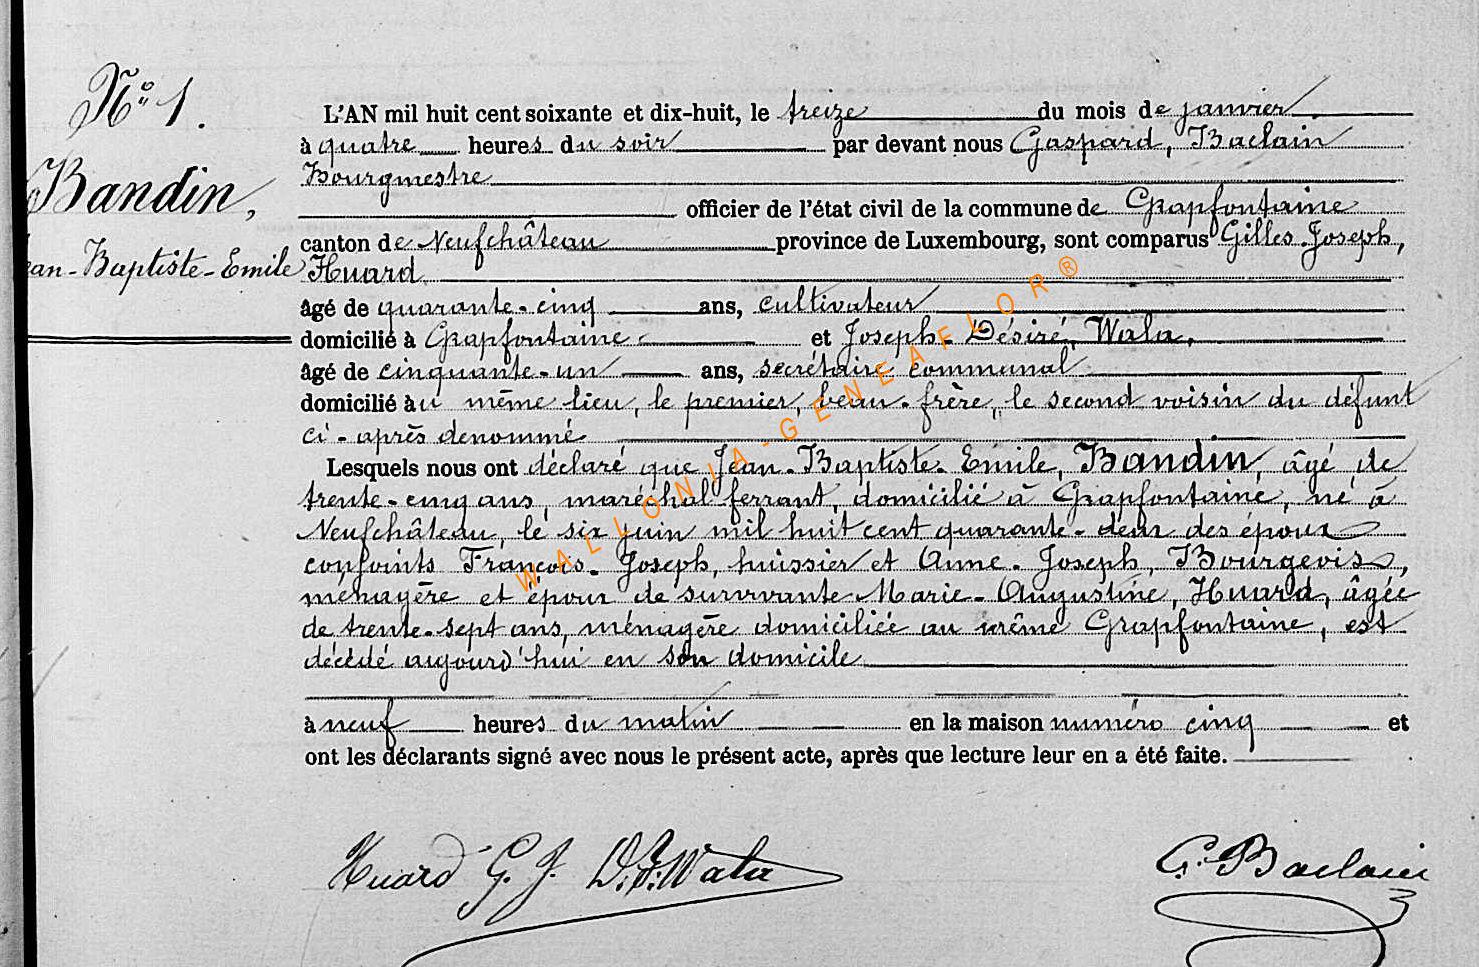 N° 1.
Bandin,
Jean-Baptiste-Emile
L'AN mil huit cent soixante et dix-huit, le treize du mois de janvier
à quatre heures du soir par devant nous Gaspard, Baclain
Bourgmestre
officier de l'état civil de la commune de Grapfontaine
canton de Neufchâteau province de Luxembourg, sont comparus Gilles Joseph,
Huard
âgé de quarante-cinq ans, cultivateur
domicilié à Grapfontaine et Joseph-Désiré, Wala,
âgé de cinquante-un ans, secrétaire communal
domicilié au même lieu, le premier, beau-frère, le second voisin du défunt
ci-après denommé
Lesquels nous ont déclaré que Jean-Baptiste-Emile, Bandin, âgé de
trente-cinq ans, maréchal ferrant, domicilié à Grapfontaine, né à
Neufchâteau, le six juin mil huit cent quarante-deux des époux
conjoints François-Joseph, huissier et Anne-Joseph, Bourgeois,
ménagère et époux de survivante Marie-Augustine, Huard, âgée
de trente-sept ans, ménagère domiciliée au même Grapfontaine, est
décédé aujourd'hui en son domicile
à neuf heures du matin en la maison numéro cinq et
ont les déclarants signé avec nous le présent acte, après que lecture leur en a été faite.
Huard G. J. D. J. Wala
G. Baclain
WALLONIA-GENEAFLOR®